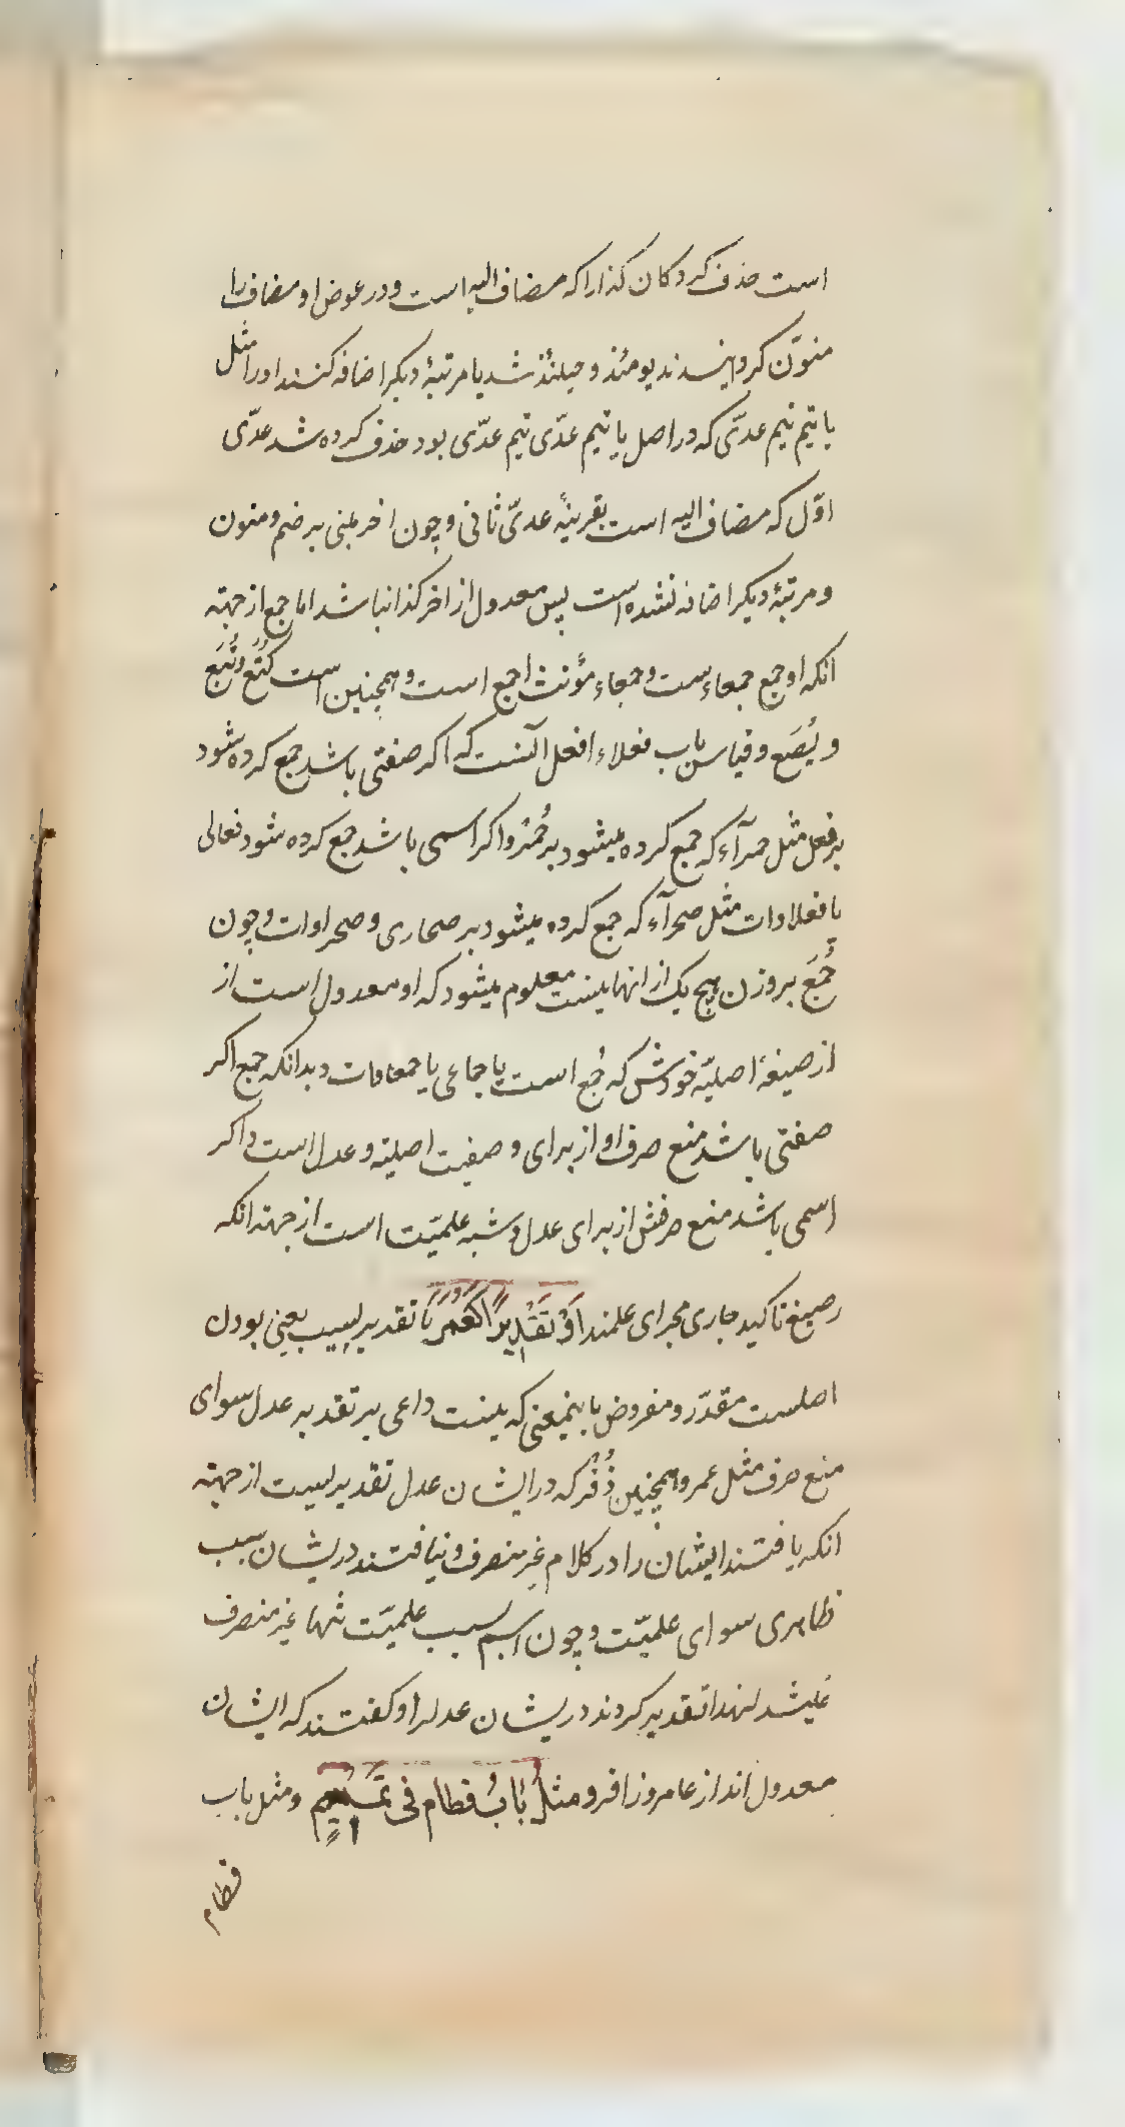 است حذف کرد کان کذا را که مضاف الیه است و در عوض او مضاف را
منوّن کردایندند یومئذ و حینئذ شد یا مرتبهٔ دیکر اضافه کنند او را مثل
یا تیم تیم عدّی که در اصل یا تیم عدّی تیم عدّی بود حذف کرده شد عدّی
اوّل که مضاف الیه است بقرینهٔ عدیّ ثانی و چون اخر مبنی بر ضم و منون
و مرتبهٔ دیکر اضافه نشده است پس معدول از اخر کذا نباشد اما جمع از جهته
انکه او جمع جمعاء ست و جمعاء مؤنث اجمع است و همچنین است کُتَع و بُتَع
و بُصَع و قیاس باب فعلاء افعل آنست که اکر صفتی باشد جمع کرده شود
بر فعل مثل حمرآء که جمع کرده میشود بر حُمر و اکر اسمی باشد جمع کرده شود فعالی
یا فعلاوات مثل صحرآء که جمع کرده میشود بر صحاری و صحراوات و چون
جُمَع بر وزن هیچ یک از انها نیست معلوم میشود که او معدول است از
از صیغهٔ اصلیّه خودش که جُمع است یا جماعی یا جمعاوات و بدانکه جمع اکر
صفتی باشد منع صرف او از برای وصفیت اصلیّه و عدل است و اکر
اسمی باشد منع صرفش از برای عدل و شبه علمیّت است از جهته انکه
صیغ تاکید جاری مجرای علمند اَوْ تَقْدِیرًا کَعُمَرَ یا تقدیریست یعنی بودن
اصلست مقدّر و مفروض باینمعنی که نیست داعی بر تقدیر عدل سوای
منع صرف مثل عمر و همچنین زُفَر که در ایشان عدل تقدیریست از جهته
انکه یافتند ایشان را در کلام غیر منصرف و نیافتند دریشان سبب
ظاهری سوای علمیّت و چون اسم بسبب علمیّت تنها غیر منصرف
نمیشد لهذا تقدیر کردند دریشان عدل را و کفتند که ایشان
معدول اند از عامر و زافر و مثلُ بَابُ قطام فی تَمِیمٍ و مثل باب
قطام